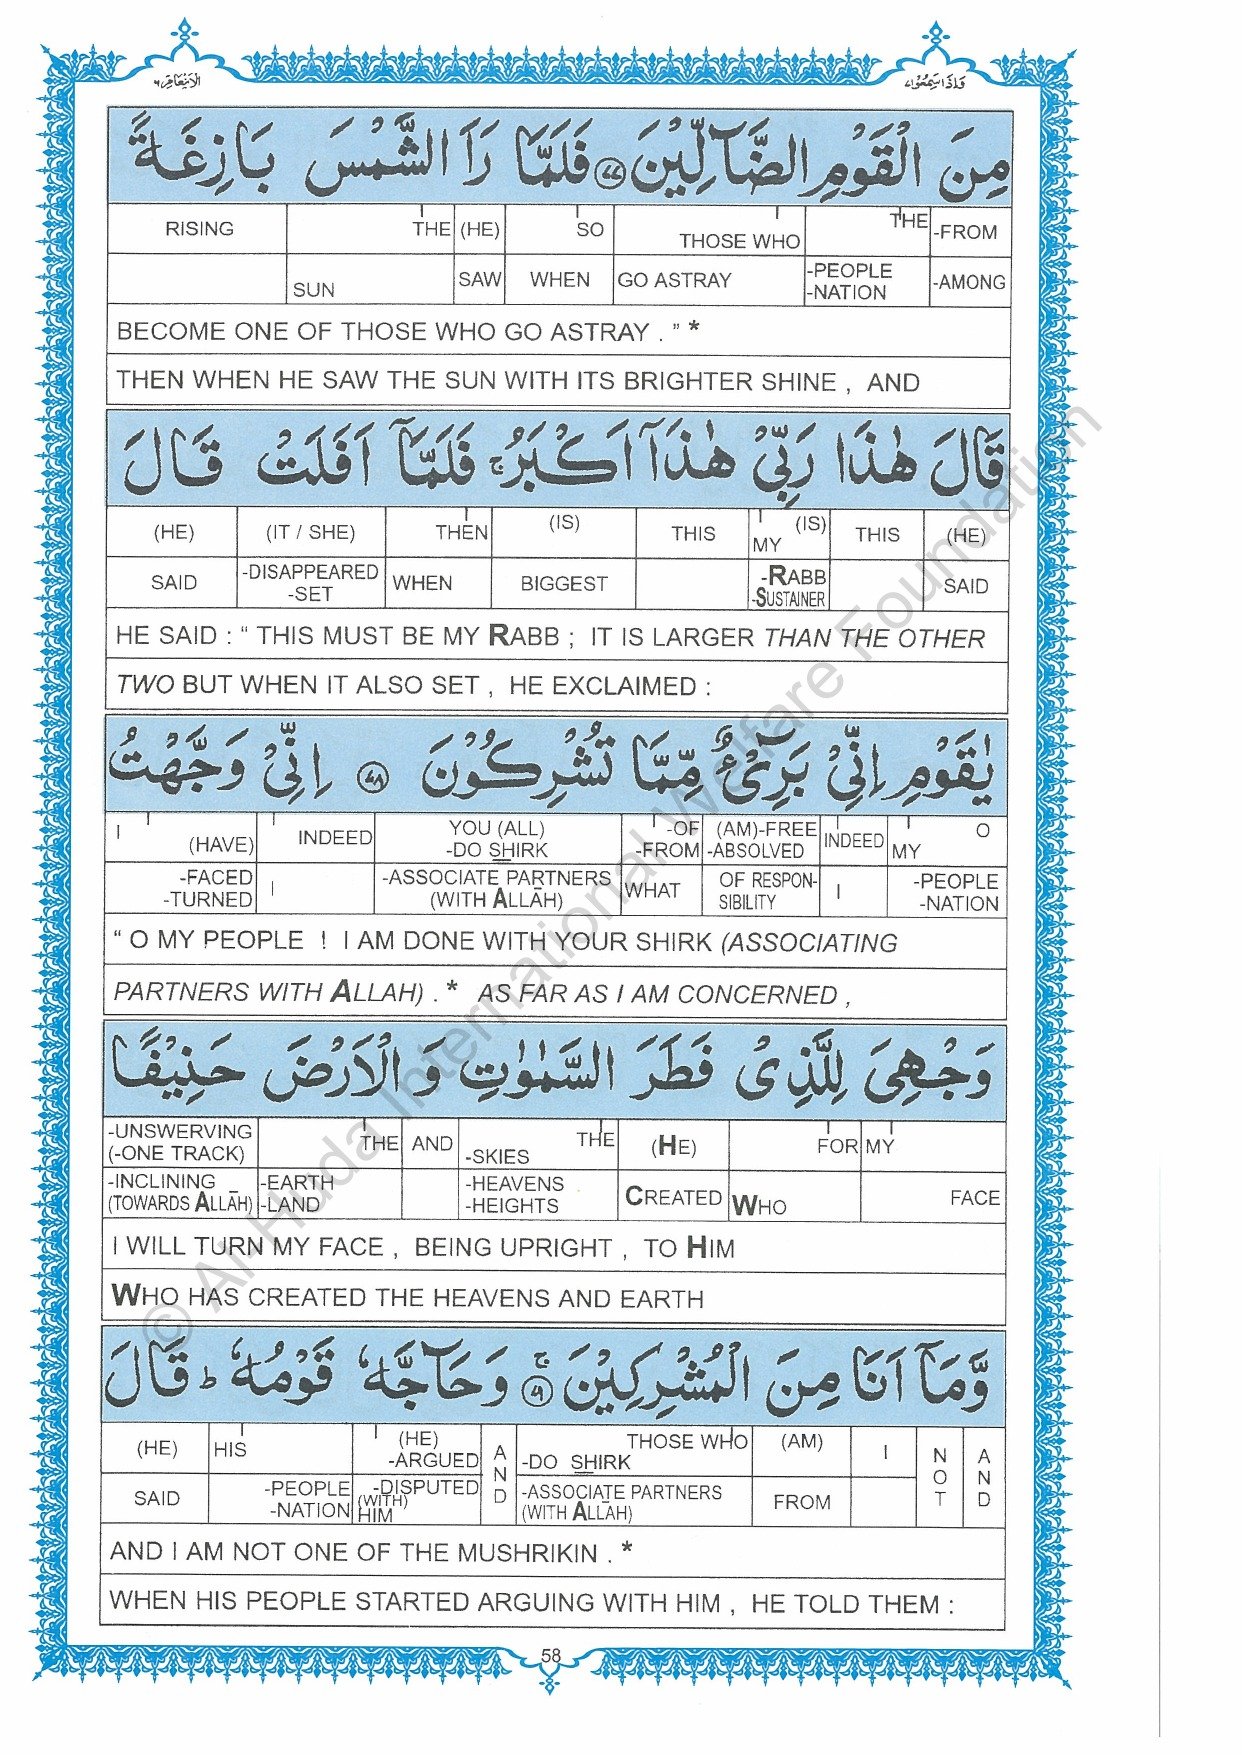 الانعام ٦
وَاِذَا سَمِعُوْا ٧
مِنَ الْقَوْمِ الضَّآلِّيْنَ ٧٧ فَلَمَّا رَاَ الشَّمْسَ بَازِغَةً
RISING THE (HE) SO THOSE WHO THE -FROM
SUN SAW WHEN GO ASTRAY -PEOPLE -NATION -AMONG
BECOME ONE OF THOSE WHO GO ASTRAY . ” *
THEN WHEN HE SAW THE SUN WITH ITS BRIGHTER SHINE , AND
قَالَ هٰذَا رَبِّيْ هٰذَآ اَكْبَرُ ۚ فَلَمَّآ اَفَلَتْ قَالَ
(HE) (IT / SHE) THEN (IS) THIS MY (IS) THIS (HE)
SAID -DISAPPEARED -SET WHEN BIGGEST -RABB -SUSTAINER SAID
HE SAID : “ THIS MUST BE MY RABB ; IT IS LARGER THAN THE OTHER
TWO BUT WHEN IT ALSO SET , HE EXCLAIMED :
يٰقَوْمِ اِنِّيْ بَرِيْٓءٌ مِّمَّا تُشْرِكُوْنَ ٧٨ اِنِّيْ وَجَّهْتُ
I (HAVE) INDEED YOU (ALL) -DO SHIRK -OF -FROM (AM)-FREE -ABSOLVED INDEED MY O
-FACED -TURNED I -ASSOCIATE PARTNERS (WITH ALLĀH) WHAT OF RESPON- SIBILITY I -PEOPLE -NATION
“ O MY PEOPLE ! I AM DONE WITH YOUR SHIRK (ASSOCIATING
PARTNERS WITH ALLAH) . * AS FAR AS I AM CONCERNED ,
وَجْهِيَ لِلَّذِيْ فَطَرَ السَّمٰوٰتِ وَالْاَرْضَ حَنِيْفًا
-UNSWERVING (-ONE TRACK) THE AND -SKIES THE (HE) FOR MY
-INCLINING (TOWARDS ALLĀH) -EARTH -LAND -HEAVENS -HEIGHTS CREATED WHO FACE
I WILL TURN MY FACE , BEING UPRIGHT , TO HIM
WHO HAS CREATED THE HEAVENS AND EARTH
وَّمَآ اَنَا مِنَ الْمُشْرِكِيْنَ ۚ ٧٩ وَحَآجَّهٗ قَوْمُهٗ ؕ قَالَ
(HE) HIS (HE) -ARGUED AND THOSE WHO -DO SHIRK (AM) I NOT AND
SAID -PEOPLE -NATION -DISPUTED (WITH) HIM -ASSOCIATE PARTNERS (WITH ALLĀH) FROM
AND I AM NOT ONE OF THE MUSHRIKIN . *
WHEN HIS PEOPLE STARTED ARGUING WITH HIM , HE TOLD THEM :
58
© Al-Huda International Welfare Foundation